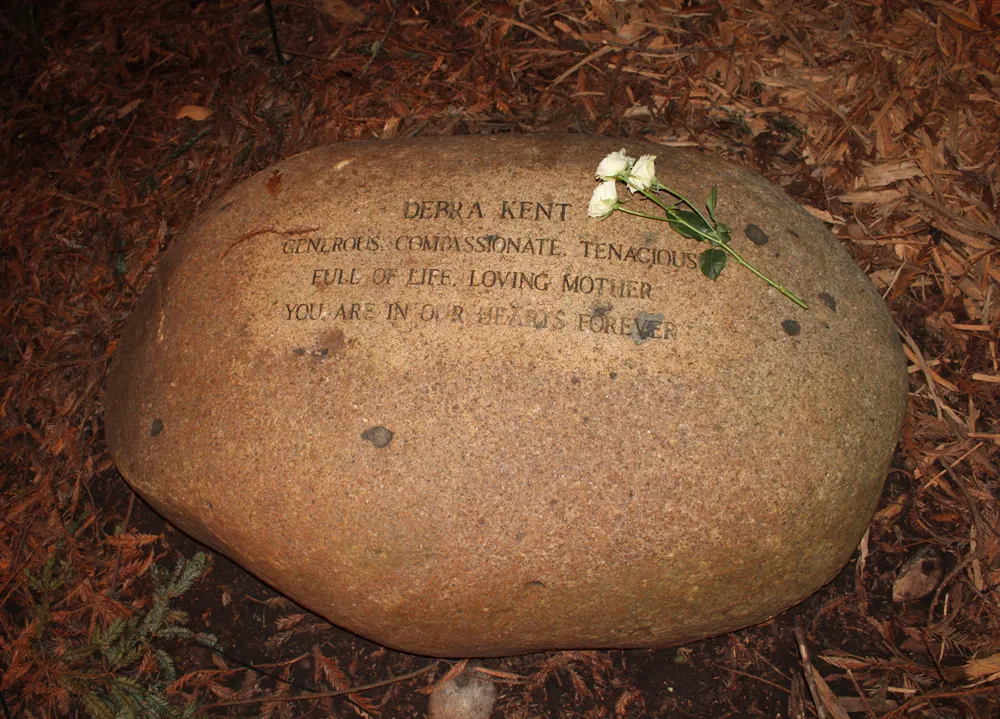 DEBRA KENT
GENEROUS, COMPASSIONATE, TENACIOUS
FULL OF LIFE, LOVING MOTHER
YOU ARE IN OUR HEARTS FOREVER